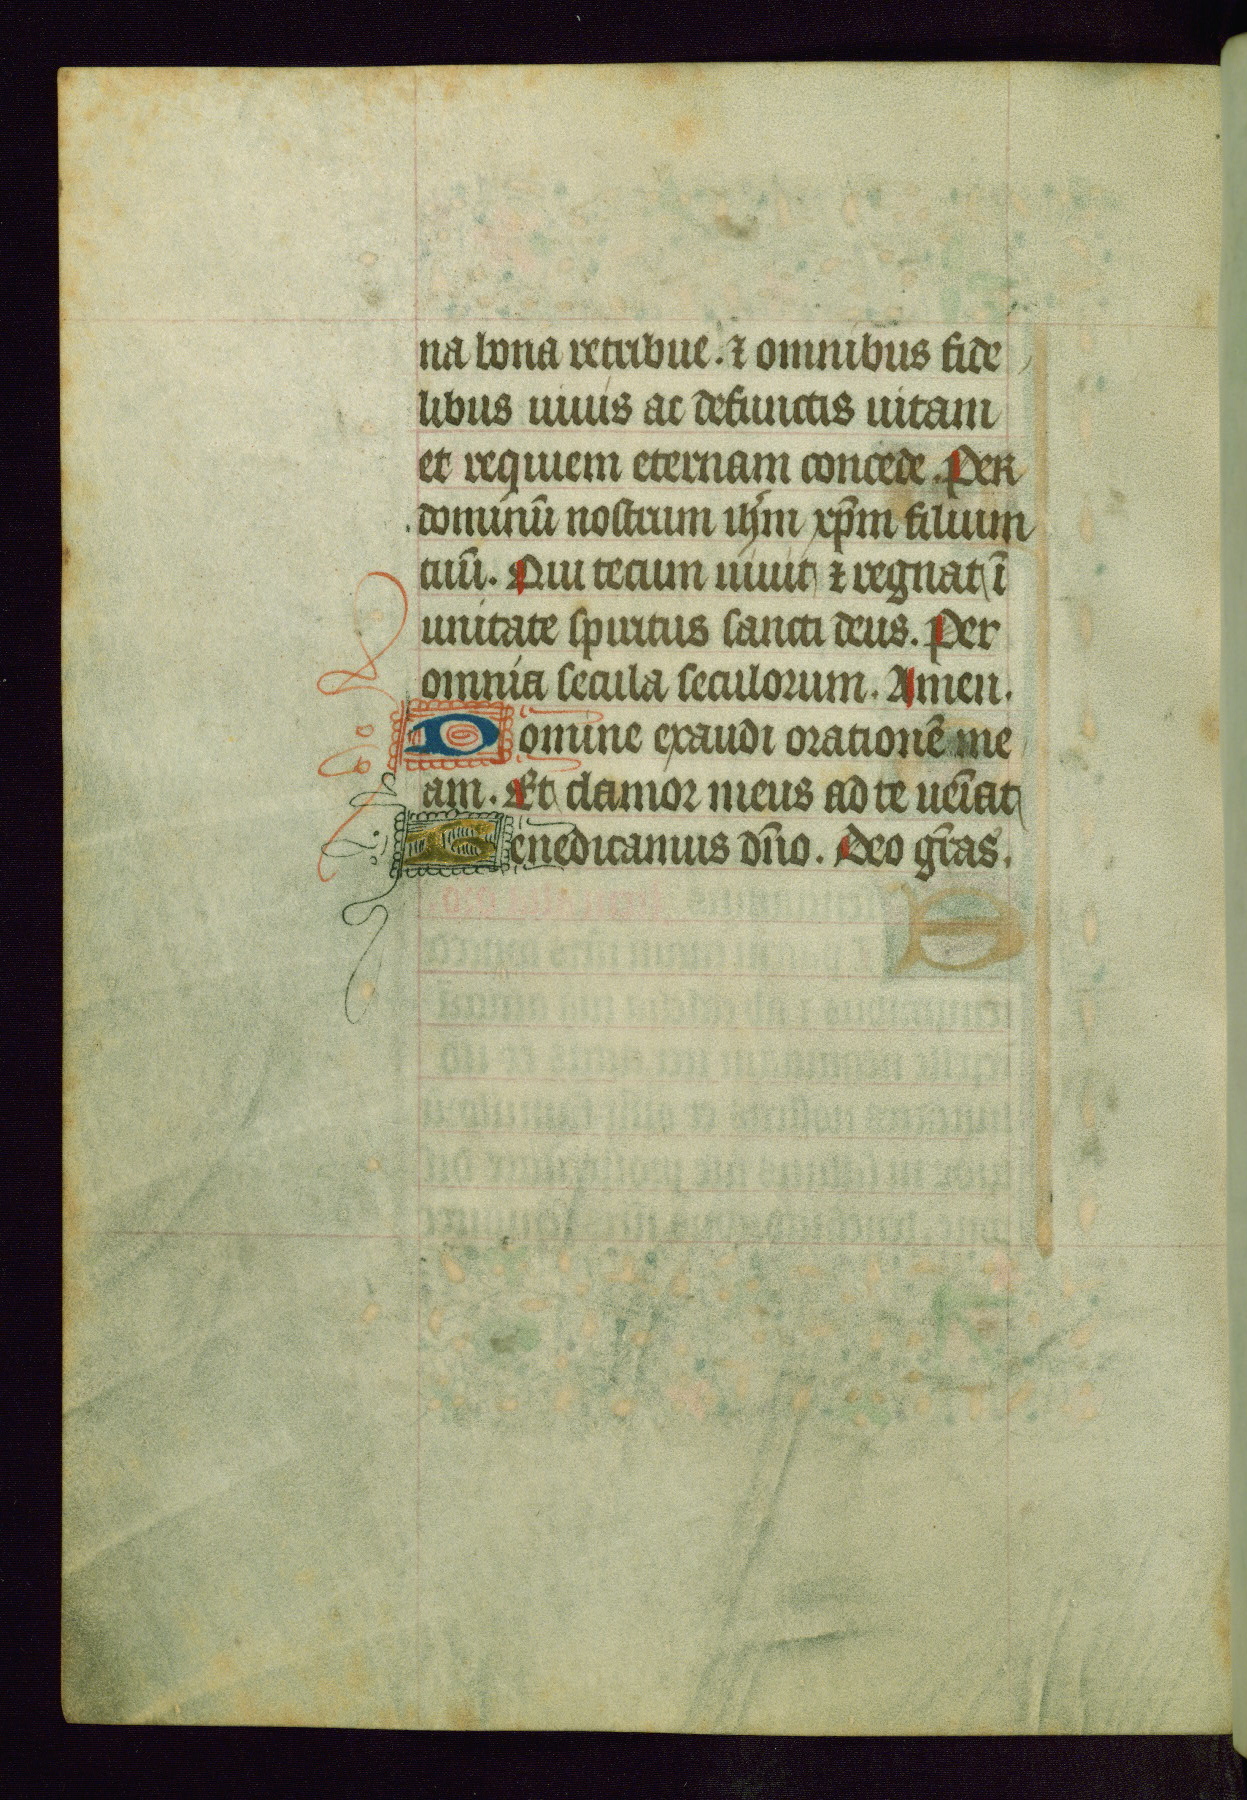 na bona retribue. ⁊ omnibus fide
libus uiuis ac defunctis uitam
et requiem eternam concede. Per
dominū nostrum ihm̄ xp̄m filium
tuū. Qui tecum uiuit ⁊ regnat ī
unitate spiritus sancti deus. Per
omnia secula seculorum. Amen.
Domine exaudi orationē me
am. Et clamor meus ad te ueīat
Benedicamus dn̄o. Deo gr̄as.